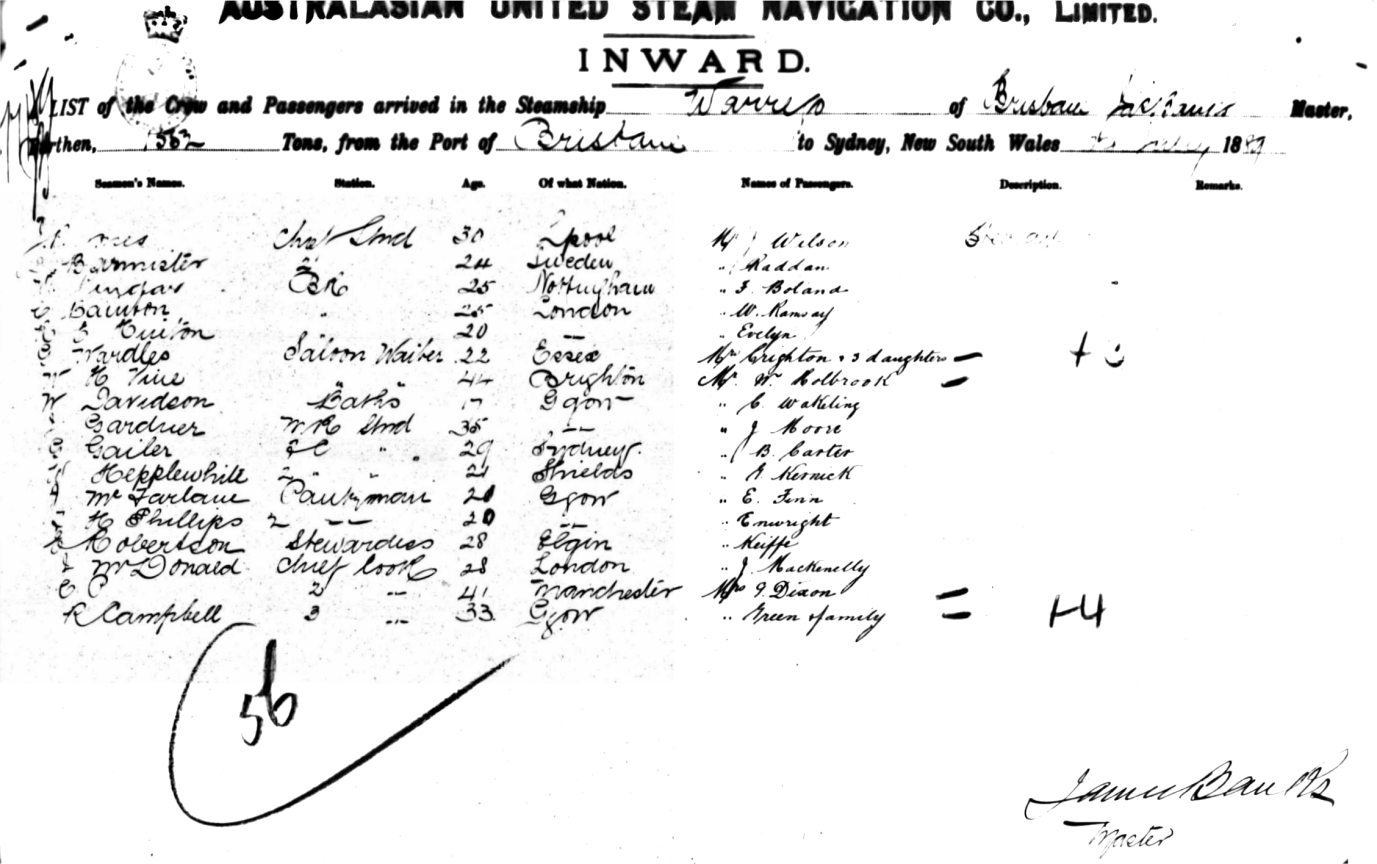 AUSTRALASIAN UNITED STEAM NAVIGATION CO., LIMITED.
INWARD.
LIST of the Crew and Passengers arrived in the Steamship Warrego of Brisbane Jas Banks Master,
Burthen, 1552 Tons, from the Port of Brisbane to Sydney, New South Wales 1889
Seamen's Names. Station. Age. Of what Nation. Names of Passengers. Description. Remarks.
Chief Stwd 30 Lpool Mr J Wilson
Bannister 2 24 Sweden " Raddan
BR 25 Nottingham " F. Boland
C Bainton " 25 London " W. Ramsay
20 — " Evelyn
G Wardles Saloon Waiter 22 Essex Mrs Crighton & 3 daughters — + 3
W H Vine " " 44 Brighton Mr W. Holbrook —
W Davidson Baths 17 Ggow " C. Wakeling
Gardner W R Stwd 35 -- " J Moore
G Gailer F C " 29 Sydney " B. Carter
Hepplewhill 2 " " 21 Shields " Kernick
A McFarlane Pantryman 20 Ggow " E. Finn
H Phillips 2 -- 20 -- " Enwright
Robertson Stewardess 28 Elgin " Keiffe
McDonald Chief Cook 28 London " J. Mackenelly
2 -- 41 Manchester Mrs J Dixon =
R Campbell 3 -- 33 Ggow " Green & family = +4
56
James Banks
Master